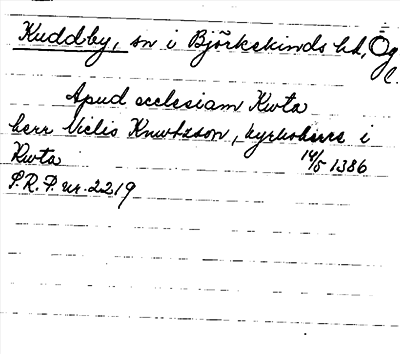 Kuddby, sn i Björkekinds hd, Ög
l.
Apud ecclesiam Kwta
herr Niclis Knwtsson, kyrkoherre i
Kwta 14/5 1386
S.R.P. nr. 2219